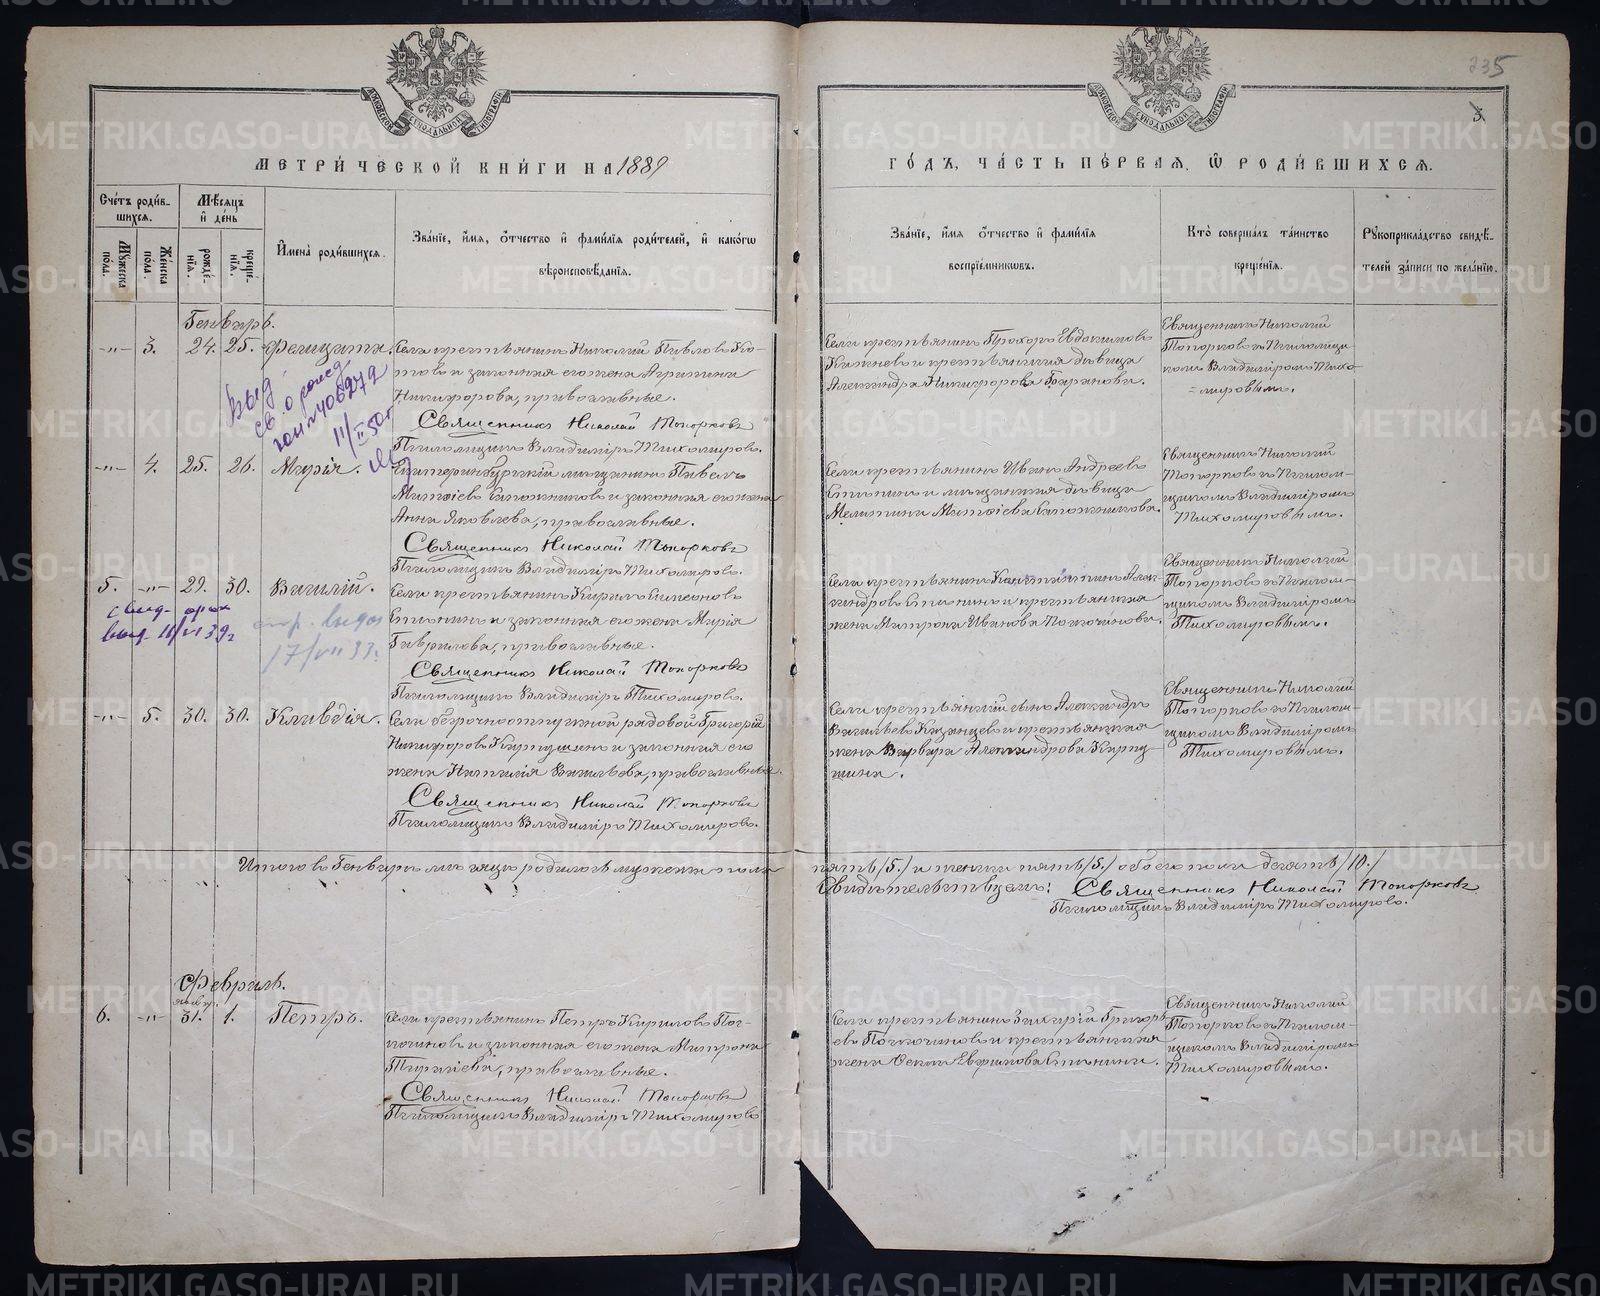 235
3
МЕТРИ́ЧЕСКОЙ КНИ́ГИ НА 1889
ГО́ДЪ, ЧА́СТЬ ПЕ́РВАЯ, Ѡ РОДИ́ВШИХСЯ.
Сче́тъ роди́вшихся.
Мѣ́сяцъ и де́нь
Мꙋ́жеска по́ла.
Же́нска по́ла.
рожде́нїя.
креще́нїя.
Имена̀ роди́вшихся.
Зва́нїе, и́мя, о́тчество и фами́лїя роди́телей, и како́гѡ
вѣроисповѣ́данїя.
Зва́нїе, и́мя о́тчество и фами́лїя
воспрїе́мниковъ.
Кто̀ соверша́лъ та́инство
креще́нїя.
Рꙋкоприкла́дство свидѣ́-
телей за́писи по жела́нїю.
Генварь.
-„- 3. 24. 25. Фелицата.
Села крестьянинъ Николай Павловъ Ко-
товъ и законная его жена Агрипина
Никифорова, православные.
Священникъ Николай Топорковъ
Псаломщикъ Владиміръ Тихомировъ.
Села крестьянинъ Прохоръ Евдокимовъ
и крестьянская дѣвица
Александра Никифорова Баранова.
Священникъ Николай
Топорковъ съ Псаломщи-
комъ Владиміромъ Тихо-
мировымъ.
Выд.
св. о рожд
11/II 50 г
-„- 4. 25. 26. Марія.
Екатеринбургскій мѣщанинъ Павелъ
Матвіевъ Сапожниковъ и законная его жена
Анна Яковлева, православные.
Священникъ Николай Топорковъ
Псаломщикъ Владиміръ Тихомировъ.
Села крестьянинъ Иванъ Андреевъ
и мѣщанская дѣвица
Мелитина Матвіева Сапожникова.
Священникъ Николай
Топорковъ съ Псалом-
щикомъ Владиміромъ
Тихомировымъ.
5. -„- 29. 30. Василій.
Села крестьянинъ Кирилъ Симеоновъ
и законная его жена Марія
Гаврилова, православные.
Священникъ Николай Топорковъ
Псаломщикъ Владиміръ Тихомировъ.
Села крестьянинъ Константинъ Алек-
сандровъ и крестьянская
жена Матрона Иванова
Священникъ Николай
Топорковъ съ Псалом-
щикомъ Владиміромъ
Тихомировымъ.
выд. 11/VI 39 г
17/VII 33 г.
-„- 5. 30. 30. Клавдія.
Села безсрочноотпускной рядовой Григорій
Никифоровъ Карпушинъ и законная его
жена Наталія Васильева, православные.
Священникъ Николай Топорковъ
Псаломщикъ Владиміръ Тихомировъ.
Села крестьянскій сынъ Александръ
Васильевъ Казанцевъ и крестьянская
жена Варвара Александрова Карпу-
шина.
Священникъ Николай
Топорковъ съ Псалом-
щикомъ Владиміромъ
Тихомировымъ.
Итого въ Генварѣ мѣсяцѣ родилось мужеска пола
пять /5./ и женска пять /5./ обоего пола десять /10./
Свидѣтельствуемъ: Священникъ Николай Топорковъ
Псаломщикъ Владиміръ Тихомировъ.
Февраль.
Январ.
6. -„- 31. 1. Петръ.
Села крестьянинъ Петръ Кириловъ
и законная его жена Матрона
православные.
Священникъ Николай Топорковъ
Псаломщикъ Владиміръ Тихомировъ
Села крестьянинъ Захарій Григорь-
евъ и крестьянская
жена Ефимова
Священникъ Николай
Топорковъ съ Псалом-
щикомъ Владиміромъ
Тихомировымъ.
METRIKI.GASO-URAL.RU